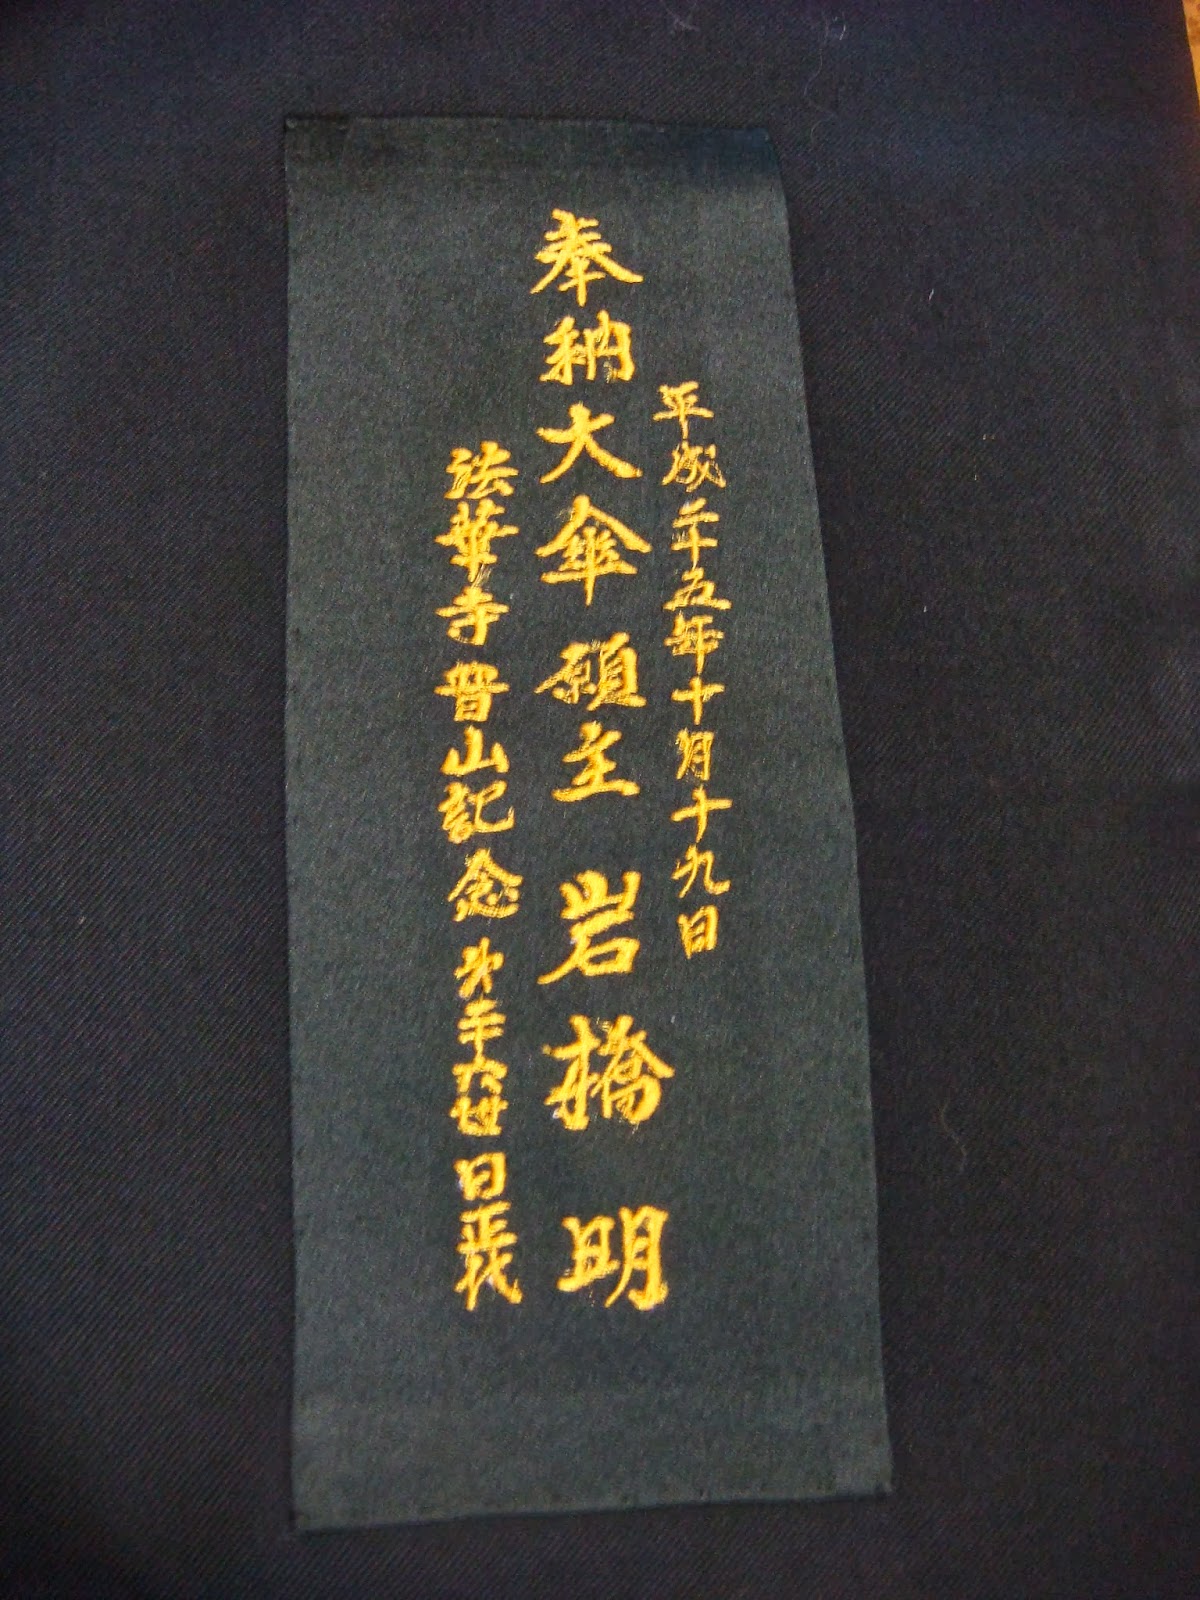 平成二十五年十月十九日
奉納大傘願主 岩橋 明
法華寺晋山記念 㐧二十六世 日